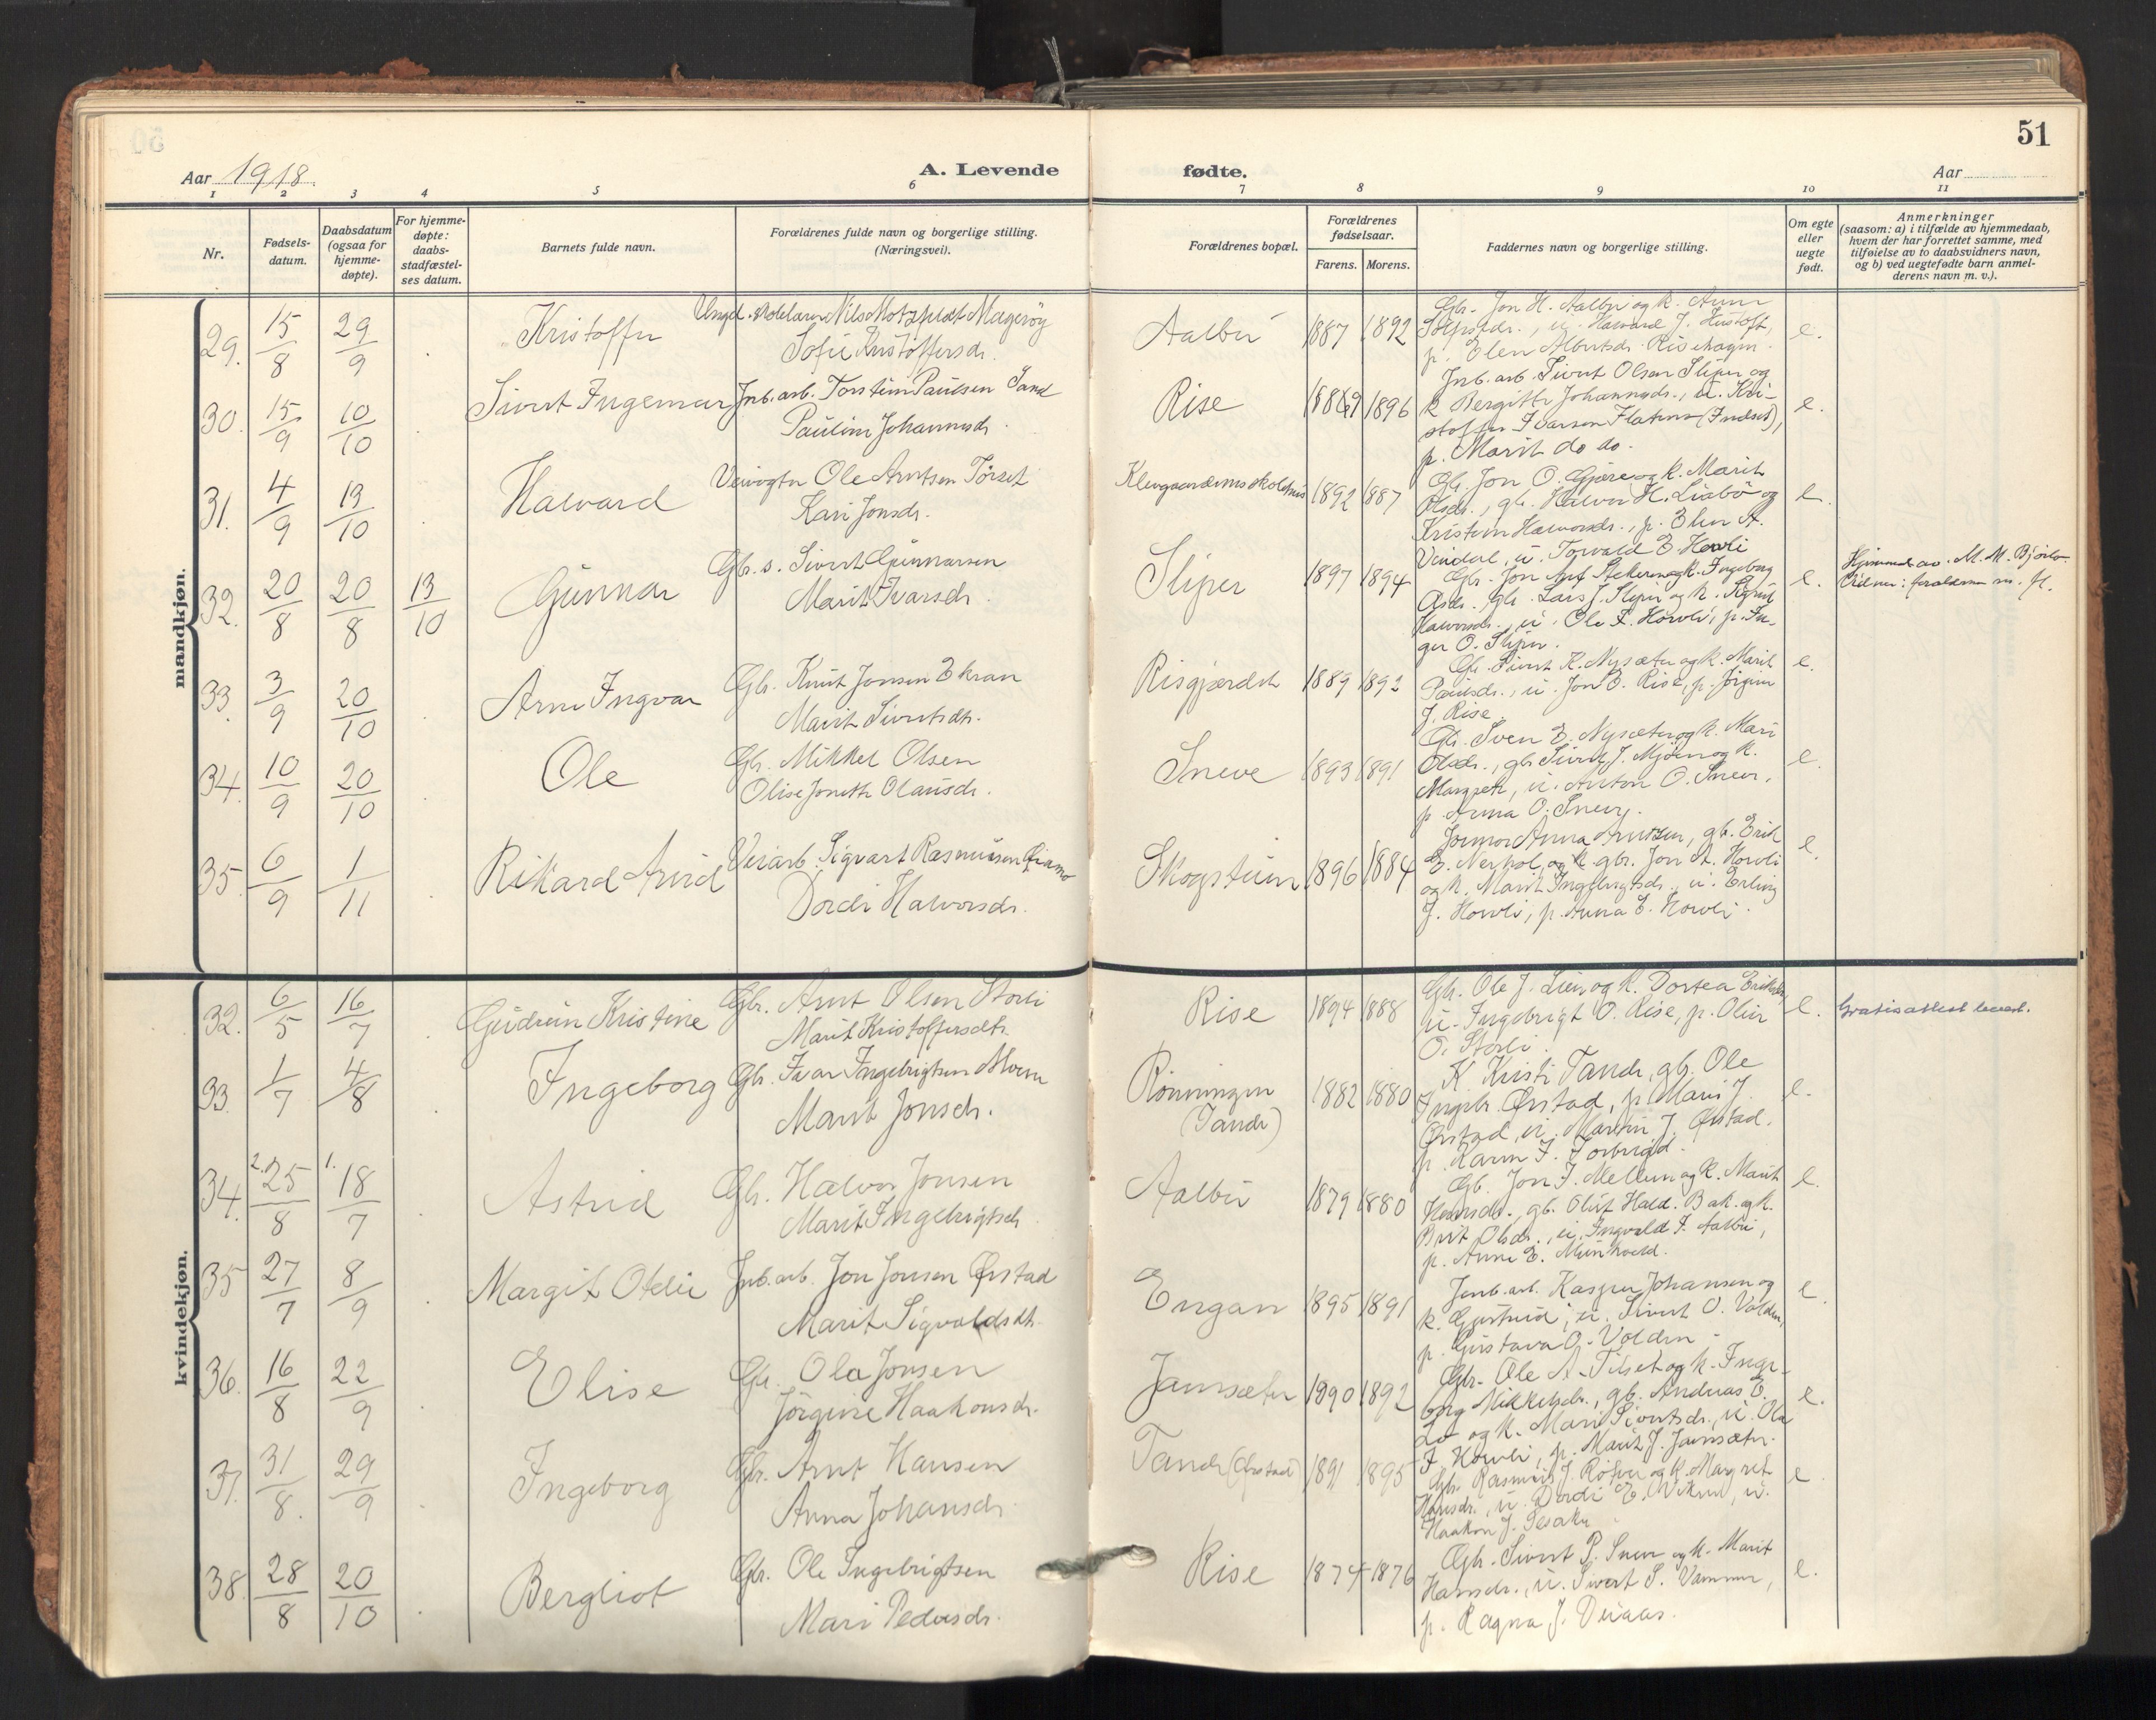 51
Aar 1918.
A. Levende
fødte.
Aar
1 2 3 4 5 6 7 8 9 10 11
Nr.
Fødsels-
datum.
Daabsdatum
(ogsaa for
hjemme-
døpte).
For hjemme-
døpte:
daabs-
stadfæstel-
ses datum.
Barnets fulde navn.
Forældrenes fulde navn og borgerlige stilling.
(Næringsvei).
Forældrenes bopæl.
Forældrenes
fødselsaar.
Farens. Morens.
Faddernes navn og borgerlige stilling.
Om egte
eller
uegte
født.
Anmerkninger
(saasom: a) i tilfælde av hjemmedaab,
hvem der har forrettet samme, med
tilføielse av to daabsvidners navn,
og b) ved uegtefødte barn anmel-
derens navn m. v.).
mandkjøn.
29. 15/8 29/9 Kristoffer
Nils Motzfeldt Magerøy
Sofie Kristoffersdr.
Aalbu 1887 1892
Gbr. Jon H. Aalbu og k. Anne
Halvard J.
p. Elen Albertsdr. Risehagen.
e.
30. 15/9 10/10 Sivert Ingemar
Inb. arb. Torstein Paulsen Sand
Pauline Johannesdr.
Rise 1889 1896
Inb. arb. Sivert Olsen Sliper og
k. Bergitte Johannesdr., u. Kri-
stoffer Ivarsen (Indset),
p. Marit do do.
e.
31. 4/9 13/10 Halvard
Veivogter Ole Arntsen Tørset
Kari Jonsdr.
Klevgaardens skolehus 1892 1887
Gb. Jon O. Gjøre og k. Marit
Olsdr., gb. Halvor H. Liabø og
Kristen Halvorsdr., p. Elen A.
Vindal, u. Torvald E. Hovli
e.
32. 20/8 20/8 13/10 Gunnar
Gb. s. Sivert Gunnarsen
Marit Ivarsdr.
Sliper 1897 1894
Gb. Jon Arnt og k. Ingeborg
gb. Lars J. Sliper og k.
Halvorsdr., u. Ole F. Hovli, p. In-
ger O. Sliper.
e.
Hjemmed. av. M. M.
33. 3/9 20/10 Arne Ingvar
Gb. Knut Jonsen Ekran
Marit Sivertsdtr.
Risgjærdet 1889 1892
Gb. Sivert K. Nysæter og k. Marit
Paulsdr., u. Jon E. Rise, p. Jørgine
J. Rise.
e.
34. 10/9 20/10 Ole
Gb. Mikkel Olsen
Olise Jonette Olausdr.
Sneve 1893 1891
Gb. Sven E. Nysæter og k. Mari
Olsdr., gb. Sivert J. Mjøen og k.
Margrete, u. Anton O. Sneve,
p. Anna O. Sneve.
e.
35. 6/9 1/11 Rikard Arvid
Veiarb. Sigvart Rasmussen
Dordi Halvorsdr.
Skogstuen 1896 1884
Jormor Anna Arntzen, gb. Erik
E. Nerhol, og k. gbr. Jon A. Hovli
og k. Marit Ingebrigtsdr., u. Erling
J. Hovli, p. Anna E. Hovli.
e.
kvindekjøn.
32. 6/5 16/7 Gudrun Kristine
Gbr. Arnt Olsen Storli
Marit Kristoffersdtr.
Rise 1894 1888
Gb. Ole J. Lien og k. Dortea Eriksdr.
u. Ingebrigt O. Rise, p. Olive
O. Storli.
e.
Gratisattest levert.
33. 1/7 4/8 Ingeborg
Gb. Ivar Ingebrigtsen Moen
Marit Jonsdr.
Rønningen
(Tande)
1882 1880
K. Kristi Tande, gb. Ole
Ingebr. Ørstad, p. Mari J.
Ørstad, u. Martin J. Ørstad.
p. Karen I.
e.
34. 2. 25/8 1. 18/7 Astrid
Gb. Halvor Jonsen
Marit Ingebrigtsdr.
Aalbu 1879 1880
Gb. Jon J. Mellem og k. Marit
Hansdr., gb. Oluf Hald. Bak og k.
Brit Olsdr., u. Ingvald I. Aalbu,
p. Anne E. Munkvold.
e.
35 27/7 8/9 Margit Otelie
Inb. arb. Jon Jonsen Ørstad
Marit Sigvaldsdt.
Engan 1895 1891
Inb. arb. Kasper Johansen og
k. Gjertrud, u. Sivert O. Volden,
p. Gustava O. Volden.
e.
36. 16/8 22/9 Elise
Gb. Ola Jonsen
Jørgine Haakonsdr.
Jamsæter 1890 1892
Gb. Ole A. Tilset og k. Inge-
borg Mikkelsdr., gb. Andreas E.
Lo og k. Mari Sivertsdr., u. Ola
F. Hovli, p. Marit J. Jamsæter.
e.
37. 31/8. 29/9 Ingeborg
Gb. Arnt Hansen
Anna Johansdr.
Tande (Ørstad) 1891 1895
Gb. Rasmus J. og k. Margret
Hansdr., u. Dordi E. u.
Haakon J.
e
38. 28/8 20/10 Bergliot
Gb. Ole Ingebrigtsen
Mari Pedersdr.
Rise 1874 1876
Gb. Sivert P. Sneve og k. Marit
Hansdr., u. Sivert S. Vammer,
p. Ragna J. Duaas.
e.